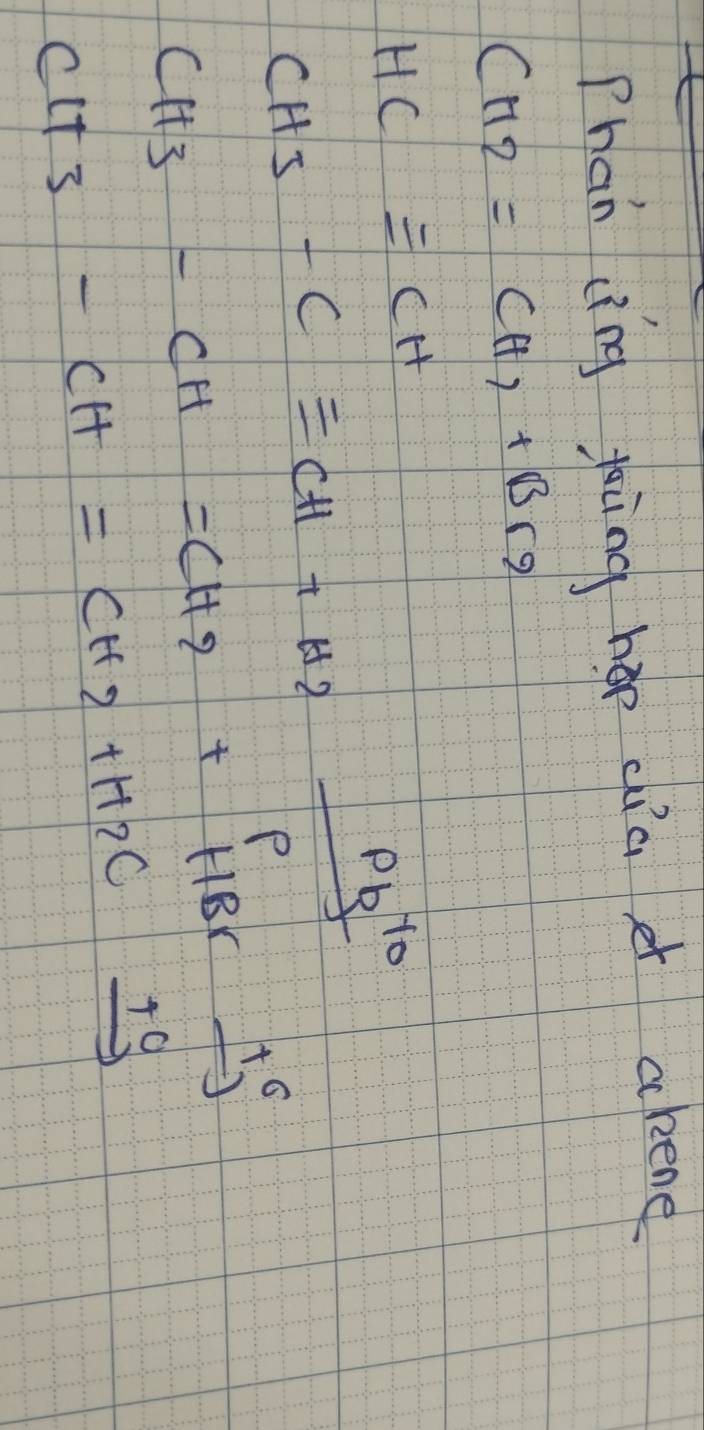 Phản ứng trùng hợp của et ahene
CH2 = CH2 + Br2
HC ≡ CH
CH3 - C ≡ CH + H2 Pb to
CH3 - CH = CH2 + HBr P to
CH3 - CH = CH2 + H2O to